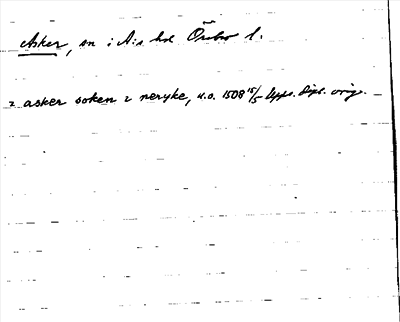 Asker, sn i A:s hd Örebro l.
i asker soken i neryke, u.o. 1508 15/5 Upps. Dipl. orig.